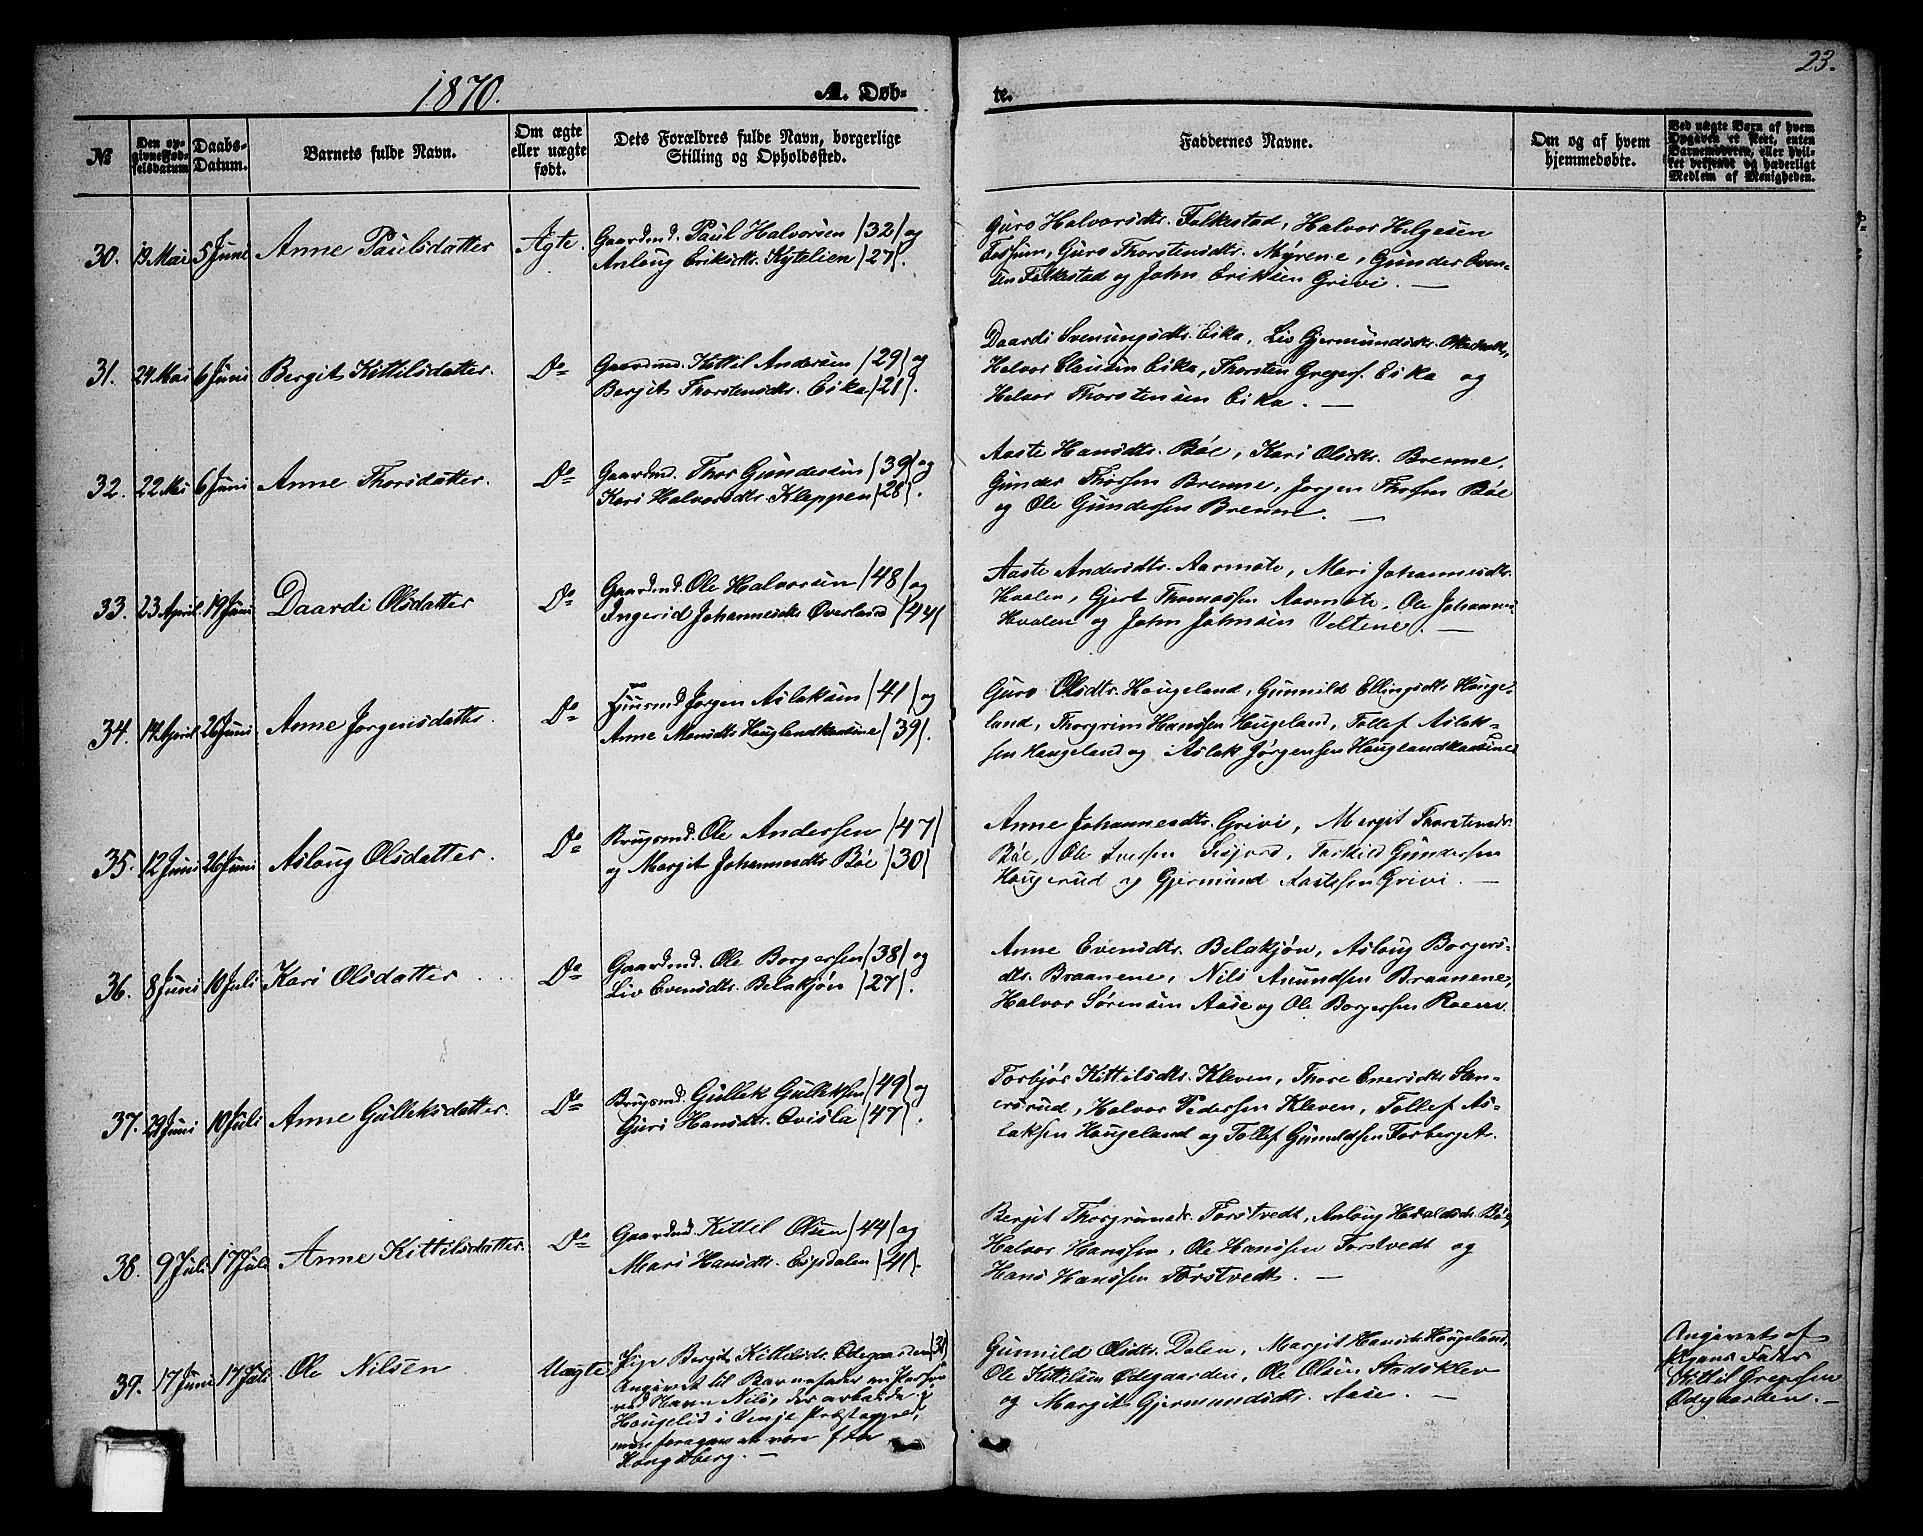 1870.
A. Døb-
te.
23.
№
Den op-
givne Fød-
selsdatum
Daabs-
Datum.
Barnets fulde Navn.
Om ægte
eller uægte
født.
Dets Forældres fulde Navn, borgerlige
Stilling og Opholdssted.
Faddernes Navne.
Om og af hvem
hjemmedøbte.
Ved uægte Børn af hvem
Opgaven er skeet, enten
Barnemoderen, eller hvil-
ket beksendt og hæderligt
Medlem af Menigheden.
30. 19 Mai 5 Juni Anne Paulsdatter Ægte
Gaardmd. Paul Halvorsen /32/ og
Anloug Eriksdtr. Kytelien /27/.
Guro Halvorsdtr. Folkestad, Halvor Helgesen
Guro Thorstensdtr. Myrene, Gunder Even-
sen Folkestad og John Eriksen Grivi. —
31. 24 Mai 6 Juni Bergit Kittilsdatter. Do
Gaardmd. Kittil Andersen /29/ og
Bergit Thorstensdtr. Eika /21/.
Daardi Svenungsdtr. Eika, Liv Gjermundsdtr.
Halvor Clausen Eika, Thorsten Gregers. Eika og
Halvor Thorstensen Eika. —
32. 22 Mai 6 Juni Anne Thorsdatter. Do
Gaardmd. Thor Gundersen /39/ og
Kari Halvorsdtr. Kleppen /28/.
Aaste Hansdtr. Bøe, Kari Olsdtr. Brenne,
Gunder Thorsen Brenne, Jørgen Thorsen Bøe
og Ole Gundersen Brenne. —
33. 23 April. 19 Juni Daardi Olsdatter Do
Gaardmd. Ole Halvorsen /48/ og
Ingerid Johannesdtr. Øverland /44/
Aaste Andersdtr. Aarmote, Mari Johannesdtr.
Hvalen, Gjert Thomassen Aarmote, Ole Johannes
Hvalen og John Johnsen Veltene. —
34. 14 April 26 Juni Anne Jørgensdatter. Do
Huusmd Jørgen Aslaksen /41/ og
Anne Monsdtr Houglandkaasene /39/.
Guro Olsdtr. Hougeland, Gunnild Ellingsdtr Houge-
land, Thorgrim Hanssen Hougeland, Tollef Aslak-
sen Hougeland og Aslak Jørgensen Houglandkaasene
35. 12 Juni 26 Juni Asloug Olsdatter. Do
Brugsmd. Ole Anderssen /47/
og Margit Johannesdtr Bøe /30/
Anne Johannesdtr. Grivi, Margit Thorstensdtr.
Bøe, Ole Iversen Terkild Gundersen
Hougerud og Gjermund Aastssen Grivi. —
36. 8 Juni 10 Juli Kari Olsdatter. Do
Gaardmd. Ole Borgersen /38/ og
Liv Evensdtr. Belakjøn /27/.
Anne Evensdtr. Belakjøn, Asloug Borgers-
dtr. Braanene, Nils Amundsen Braanene,
Halvor Sørensen Aase og Ole Borgersen Roen.
37. 29 Juni 10 Juli Anne Gulleksdatter. Do
Brugsmd. Gullek Gulleksen /49/ og
Guri Hansdtr. Evisla /47/.
Torbjør Kittilsdtr. Kleven, Thore Enersdtr San-
ersrud, Halvor Pedersen Kleven, Tollef As-
laksen Hougeland og Tollef Gunuldsen Forberget.
38. 9 Juli 17 Juli Anne Kittilsdatter. Do
Gaardmd Kittil Olsen /44/ og
Mari Hansdtr. Eisdalen /41/.
Bergit Thorgrimsdtr. Forstvedt, Anloug Haraldsdtr. Bøe,
Halvor Hanssen, Ole Hanssen Forstvedt og
Hans Hanssen Forstvedt. —
39. 17 Juni 17 Juli Ole Nilsen Uægte
Pige Bergit Kittilsdtr. Ødegaarden /31/
Angivet til Barnefader en Person
ved Navn Nils, der arbeidde p.
Hougelid i Vinje Præstegjeld,
men foregav at være fra
Kongsberg. —
Gunnild Olsdtr. Dalen, Margit Hansdtr Hougeland,
Ole Kittilsen Ødegaarden, Ole Olsen Stadsklev
og Margit Gjermundsdtr. Aase. —
Angivet af
Pigens Fader
Kittil Gregersen
Ødegaarden. —